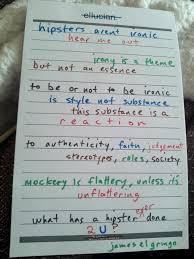 ellusion.
hipsters arent ironic
hear me out
irony is a theme
but not an essence
to be or not to be ironic
is style not substance
this substance is a
reaction
to authenticity, faith, judgement
stereotypes, roles, society.
mockery is flattery, unless its
unflattering
what has a hipster ever done
2 U?
james el gringo